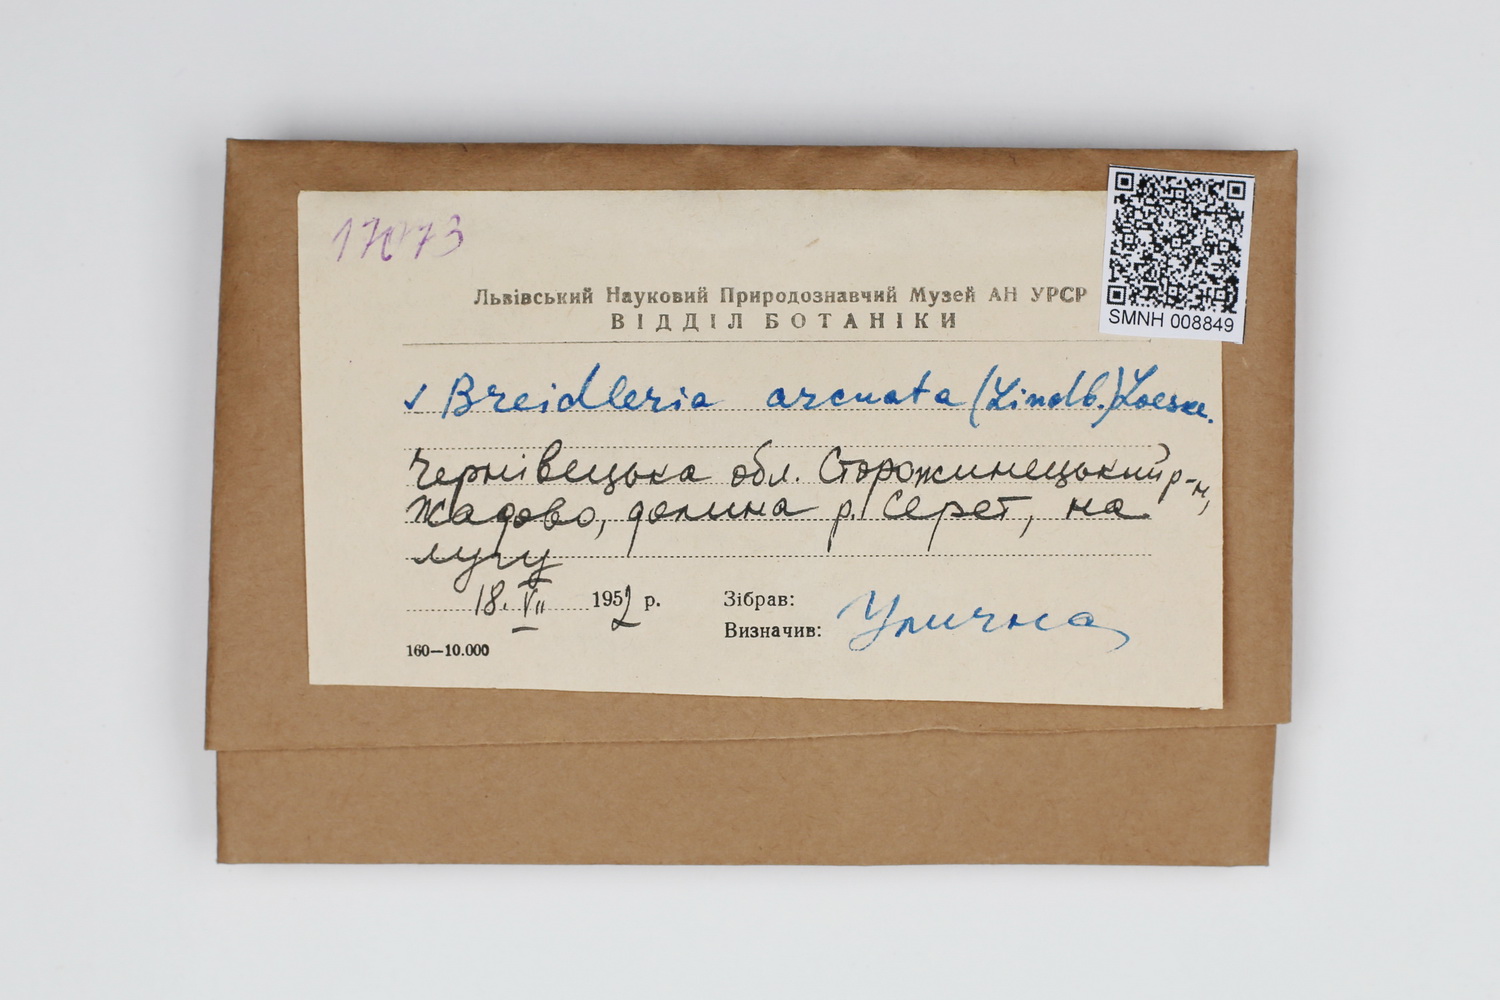 17073
Львівський Науковий Природознавчий Музей АН УРСР
ВІДДІЛ БОТАНІКИ
SMNH 008849
✓ Breidleria arcuata (Lindb.) Loeske.
Чернівецька обл. Сторожинецький р-н,
Жадово, долина р. Серет, на
лугу
18. VII 1952 р.
Зібрав:
Визначив: Улична
160—10.000